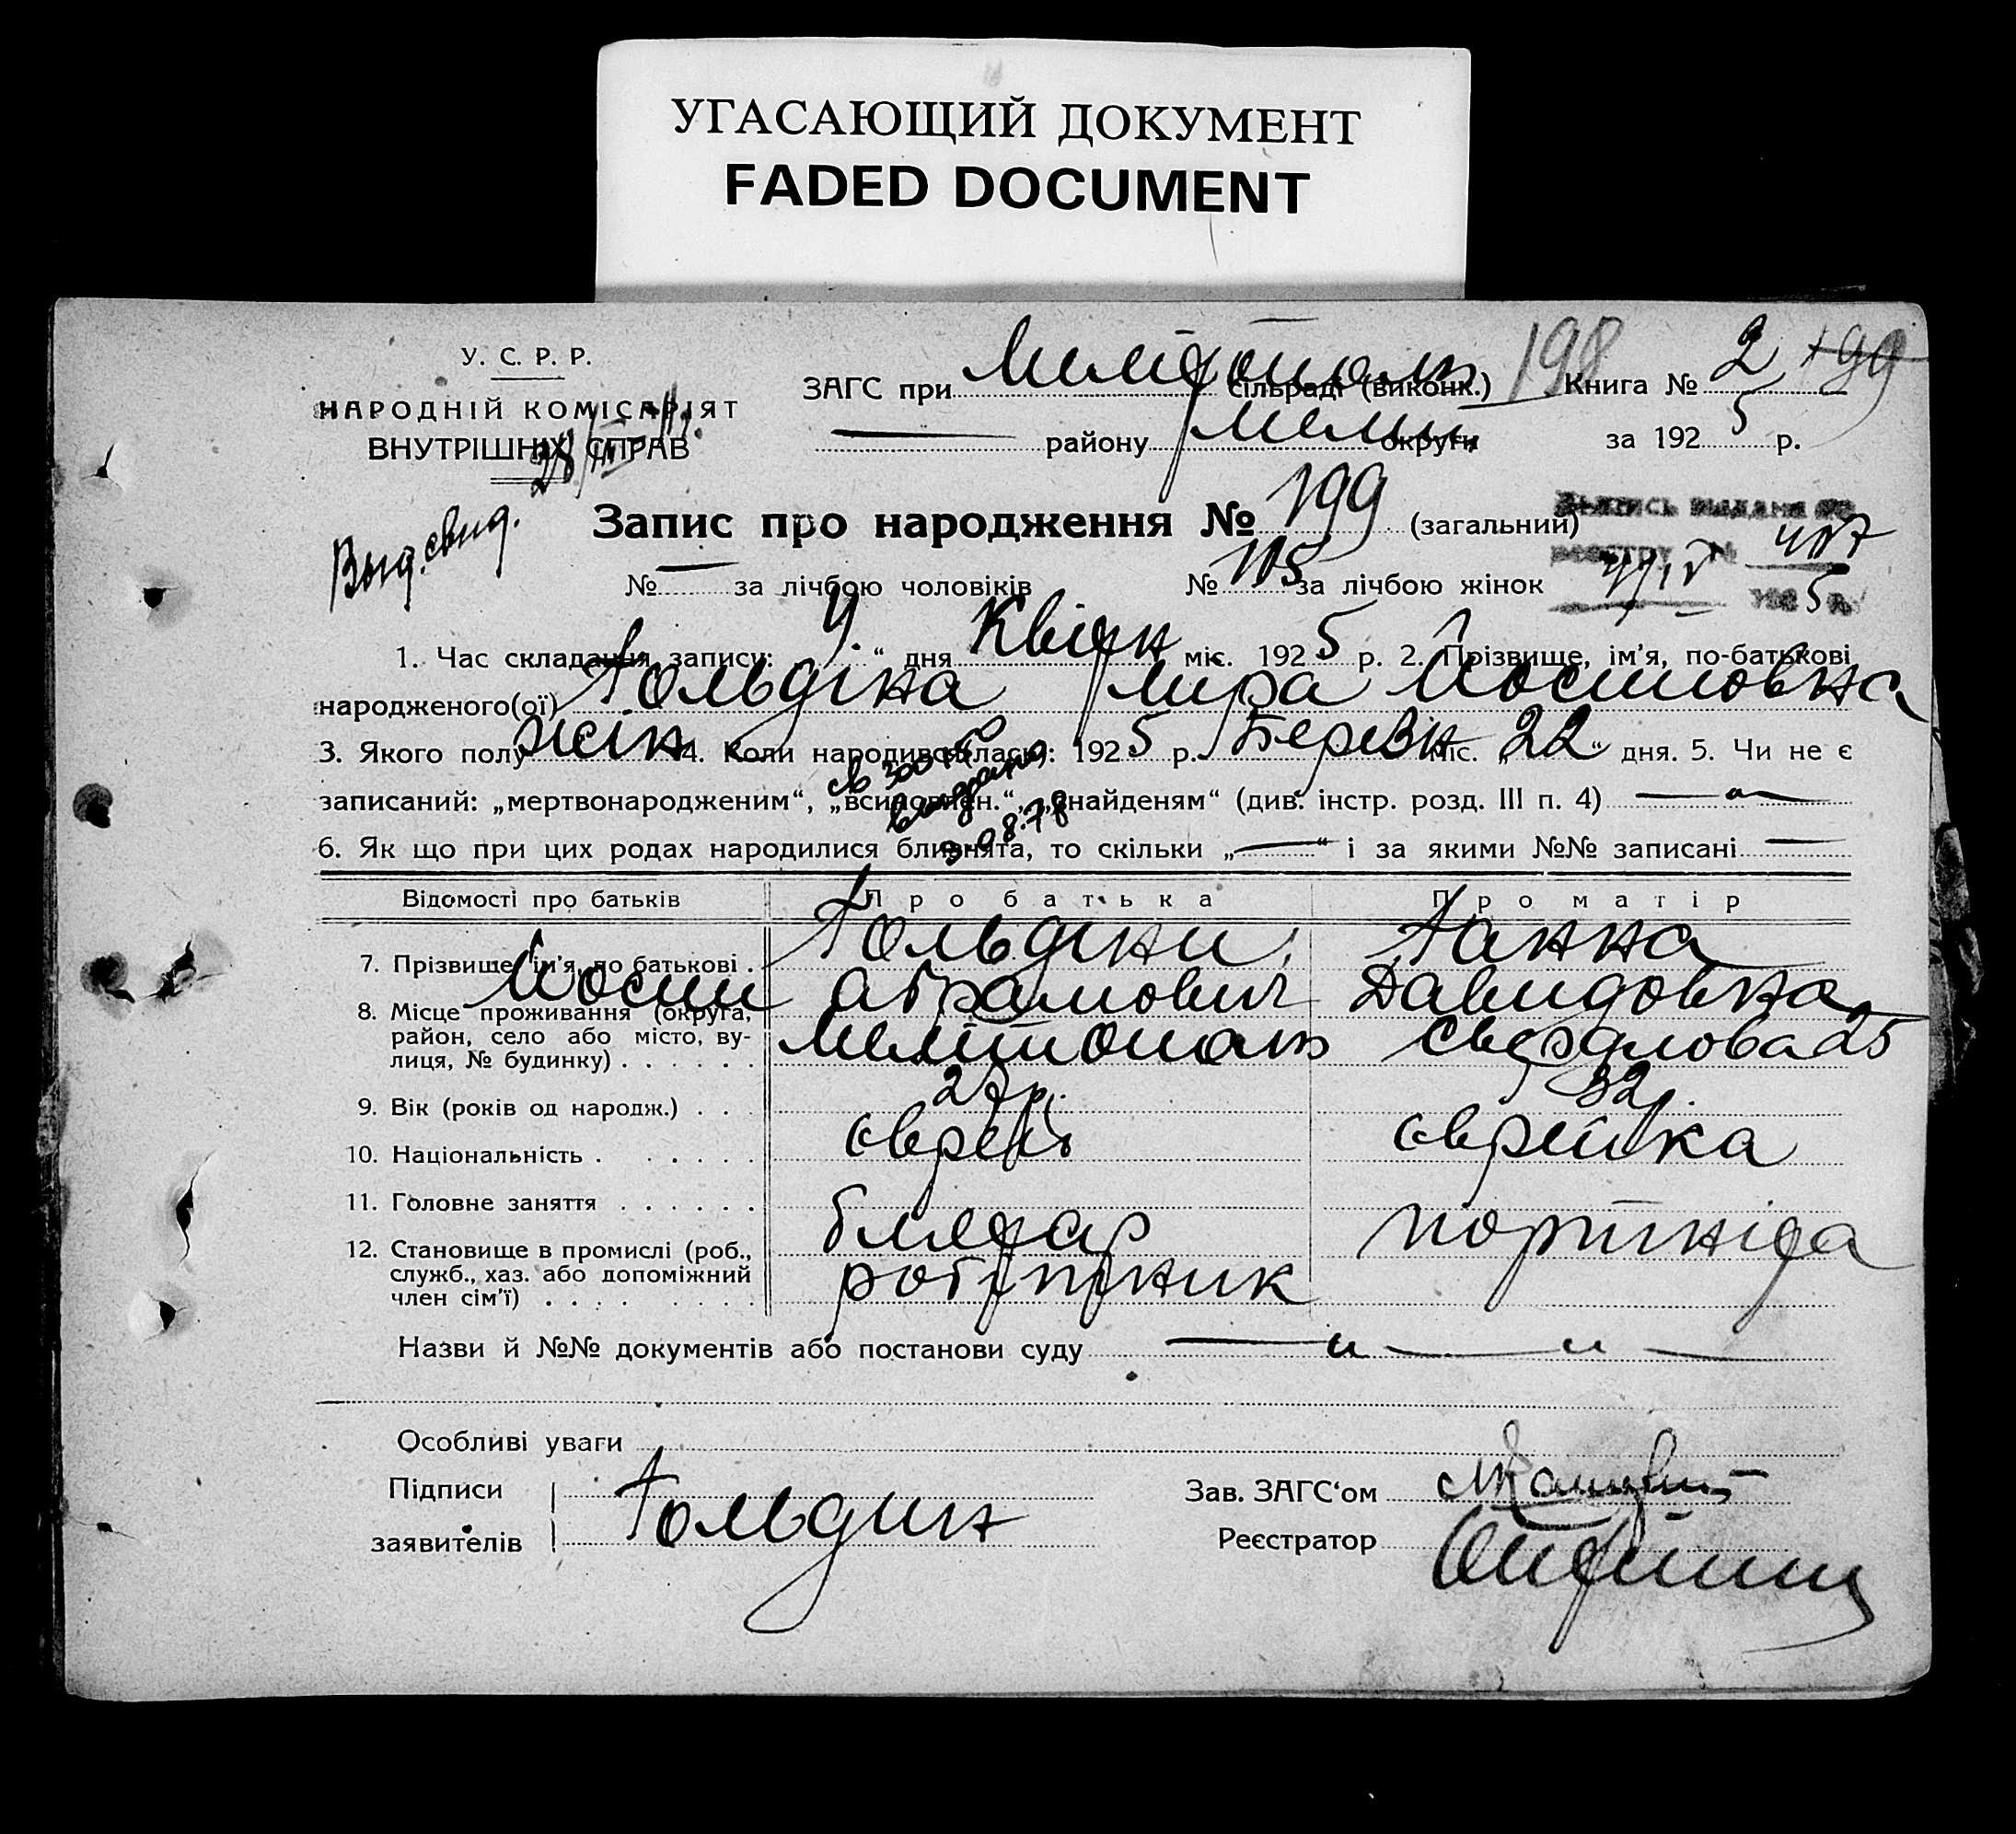 УГАСАЮЩИЙ ДОКУМЕНТ
FADED DOCUMENT
У. С. Р. Р.
НАРОДНІЙ КОМІСАРІЯТ
ВНУТРІШНІХ СПРАВ
ЗАГС при Мелітополь сільраді (виконк.) 198 Книга № 2 199
— району Меліт. округи за 1925 р.
Выд. свид.
Запис про народження № 199 (загальний)
№ — за лічбою чоловіків № 105 за лічбою жінок
1. Час складання запису: „ “ дня Квітн міс. 1925 р. 2. Прізвище, ім’я, по-батькові
народженого(ої) Гольдіна Мира Йосиповна
3. Якого полу жін 4. Коли народився(лась): 1925 р. Березн міс. „22“ дня. 5. Чи не є
записаний: „мертвонародженим“, „всиновлен.“, „знайденям“ (див. інстр. розд. III п. 4) — „ —
выдано
3.08.78
6. Як що при цих родах народилися близнята, то скільки „—“ і за якими №№ записані —
Відомості про батьків Про батька Про матір
7. Прізвище, ім’я, по батькові . Гольдин Ганна
Йосип Абрамович Давидовна
8. Місце проживання (округа, район, село або місто, ву-
лиця, № будинку) . . . . . . Мелітополь Свердлова 25
9. Вік (років од народж.) . . . 27 р. 32 р.
10. Національність . . . . . . єврей єврейка
11. Головне заняття . . . . . . бляхар портніха
12. Становище в промислі (роб.,
служб., хаз. або допоміжний
член сім’ї) . . . . робітник
Назви й №№ документів або постанови суду — „ — „ —
Особливі уваги
Підписи
заявителів Гольдин
Зав. ЗАГС‘ом
Реєстратор